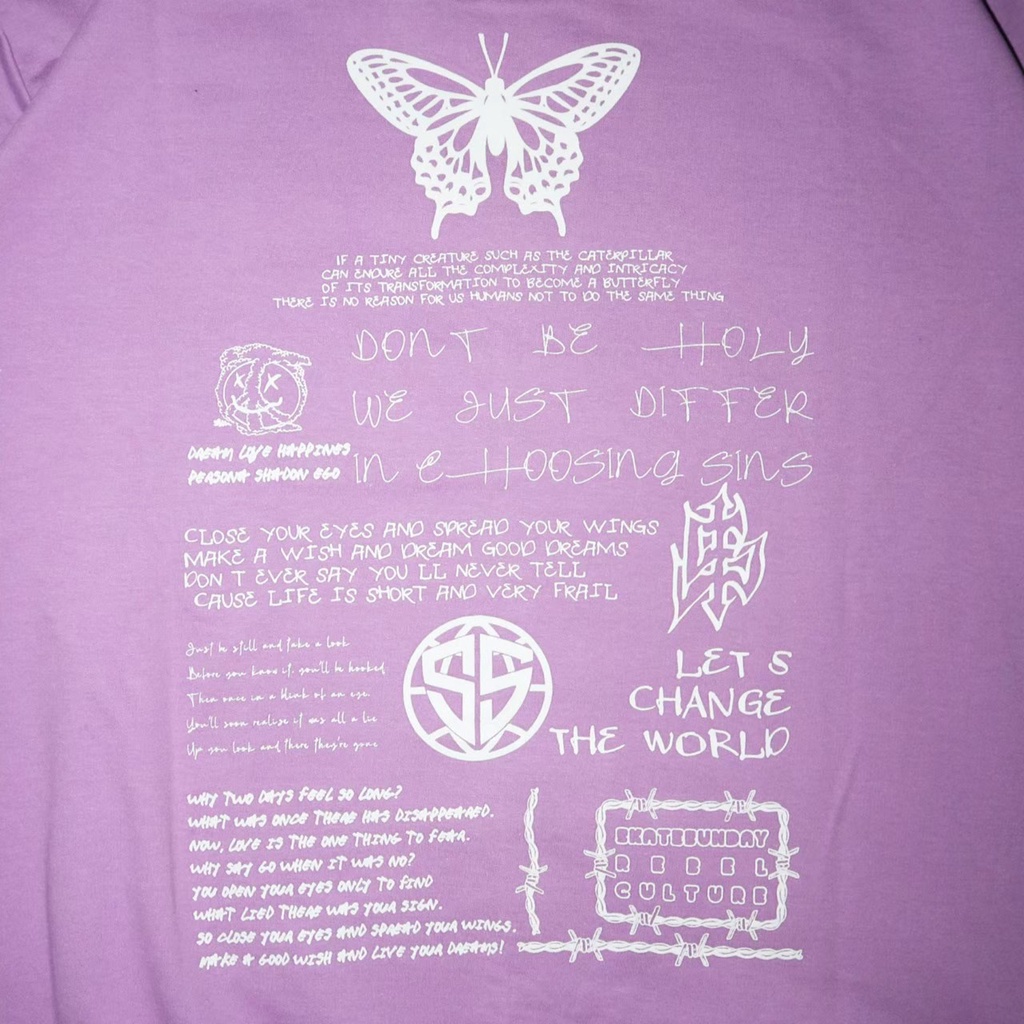 IF A TINY CREATURE SUCH AS THE CATERPILLAR
CAN ENDURE ALL THE COMPLEXITY AND INTRICACY
OF ITS TRANSFORMATION TO BECOME A BUTTERFLY
THERE IS NO REASON FOR US HUMANS NOT TO DO THE SAME THING
DONT BE HOLY
WE JUST DIFFER
in cHoosing sins
DREAM LOVE HAPPINES
PERSONA SHADOW EGO
CLOSE YOUR EYES AND SPREAD YOUR WINGS
MAKE A WISH AND DREAM GOOD DREAMS
DON T EVER SAY YOU LL NEVER TELL
CAUSE LIFE IS SHORT AND VERY FRAIL
Just be still and take a look
Before you know it, you'll be hooked
Then once in a blink of an eye
You'll soon realise it was all a lie
Up you look and there they're gone
SS
LET S
CHANGE
THE WORLD
WHY TWO DAYS FEEL SO LONG?
WHAT WAS ONCE THERE HAS DISAPPEARED.
NOW, LOVE IS THE ONE THING TO FEAR.
WHY SAY GO WHEN IT WAS NO?
YOU OPEN YOUR EYES ONLY TO FIND
WHAT LIED THERE WAS YOUR SIGN.
SO CLOSE YOUR EYES AND SPREAD YOUR WINGS.
MAKE A GOOD WISH AND LIVE YOUR DREAMS!
SKATESUNDAY
REBEL
CULTURE